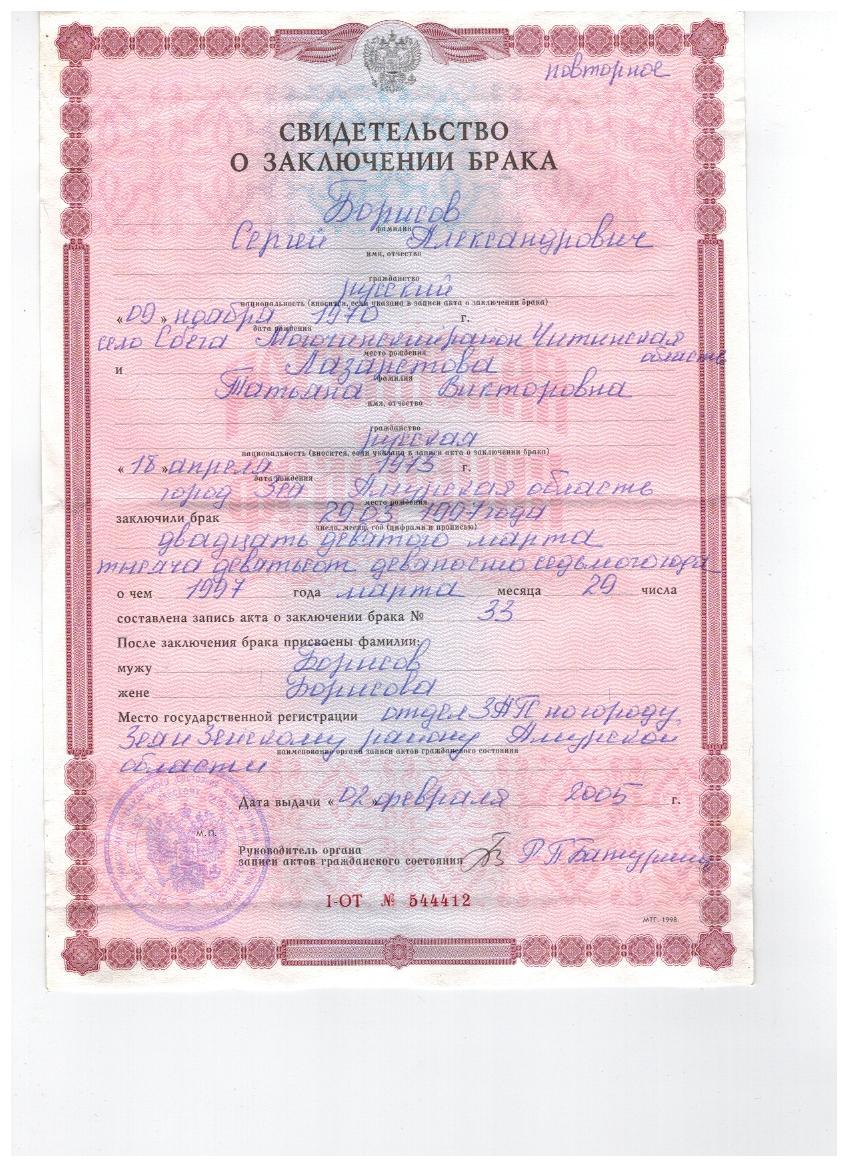 повторное
СВИДЕТЕЛЬСТВО
О ЗАКЛЮЧЕНИИ БРАКА
Борисов
фамилия
Сергей Александрович
имя, отчество
гражданство
русский
национальность (вносится, если указана в записи акта о заключении брака)
« 09 » ноября 1970 г.
дата рождения
село Сбега Могочинский район Читинская
место рождения
область
и Лазаретова
фамилия
Татьяна Викторовна
имя, отчество
гражданство
русская
национальность (вносится, если указана в записи акта о заключении брака)
« 18 » апреля 1973 г.
дата рождения
город Зея Амурская область
место рождения
заключили брак 29.03 1997 года
число, месяц, год (цифрами и прописью)
двадцать девятого марта
тысяча девятьсот девяносто седьмого года
о чем 1997 года марта месяца 29 числа
составлена запись акта о заключении брака № 33
После заключения брака присвоены фамилии:
мужу Борисов
жене Борисова
Место государственной регистрации отдел ЗАГС по городу
Зея и Зейскому району Амурской
наименование органа записи актов гражданского состояния
области
Дата выдачи « 02 » февраля 2005 г.
М.П.
Руководитель органа
записи актов гражданского состояния
I-ОТ № 544412
МТГ. 1998.